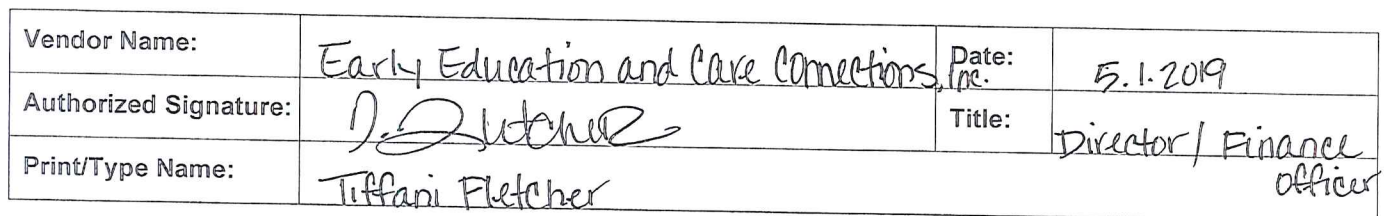 Vendor Name: Early Education and Care Connections, Inc. Date: 5.1.2019
Authorized Signature: T. Fletcher Title: Director / Finance Officer
Print/Type Name: Tiffani Fletcher